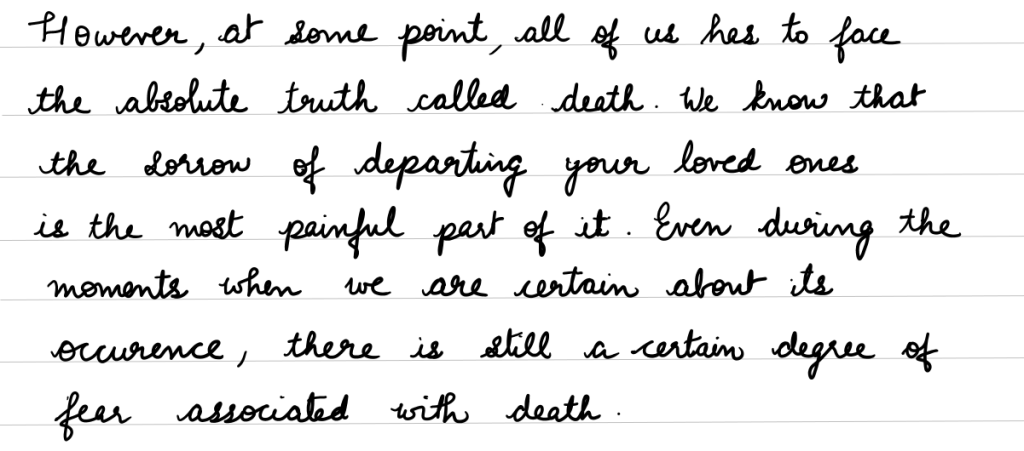 However, at some point, all of us has to face
the absolute truth called death. We know that
the sorrow of departing your loved ones
is the most painful part of it. Even during the
moments when we are certain about its
occurence, there is still a certain degree of
fear associated with death.